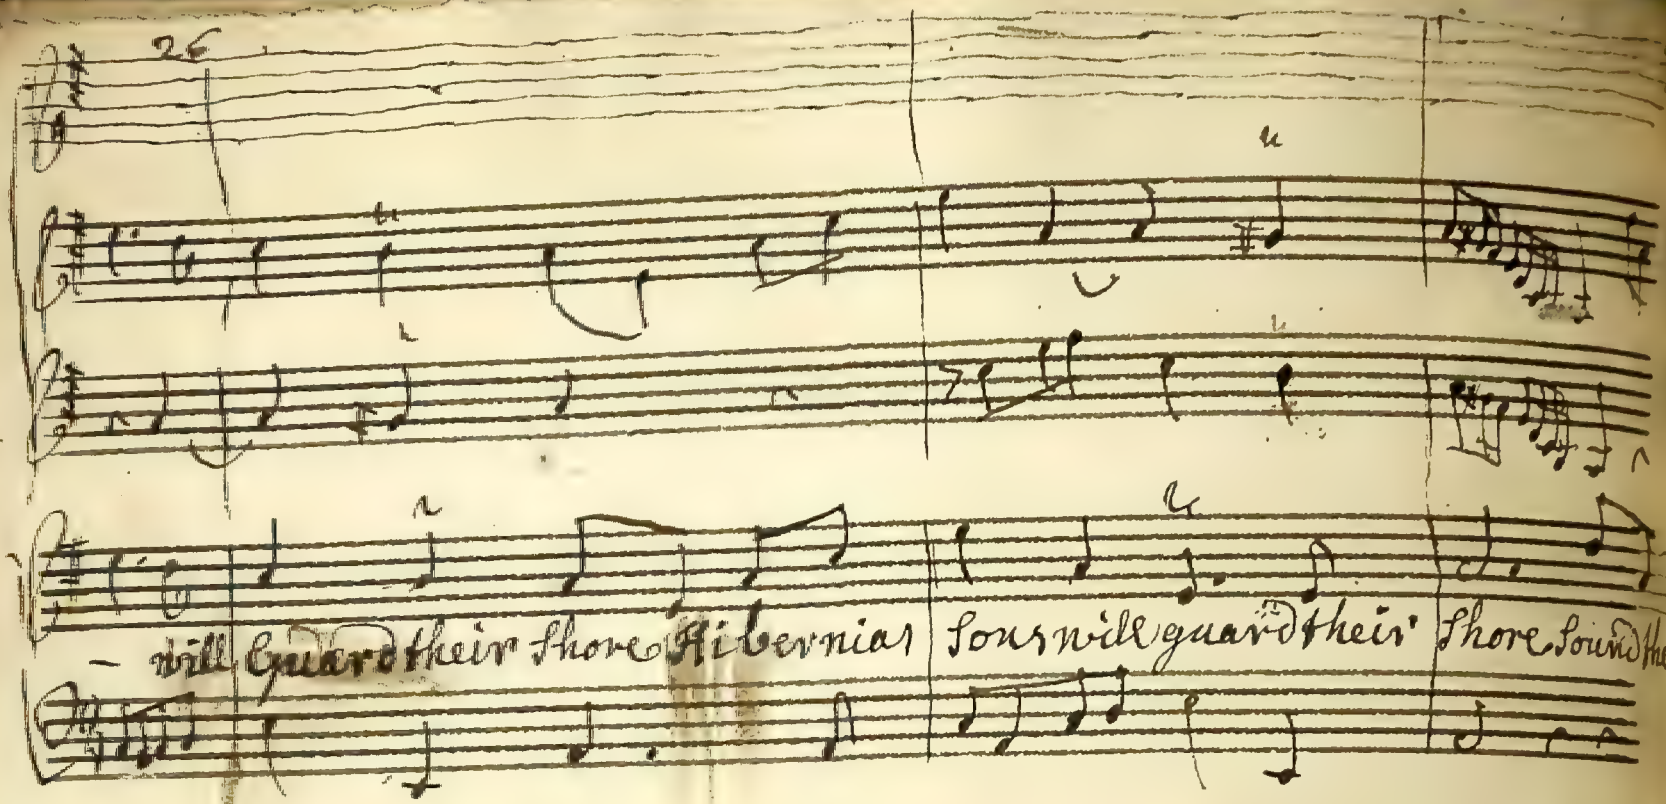 26
will Guard their Shore Hibernias Sons will guard their Shore Sound the